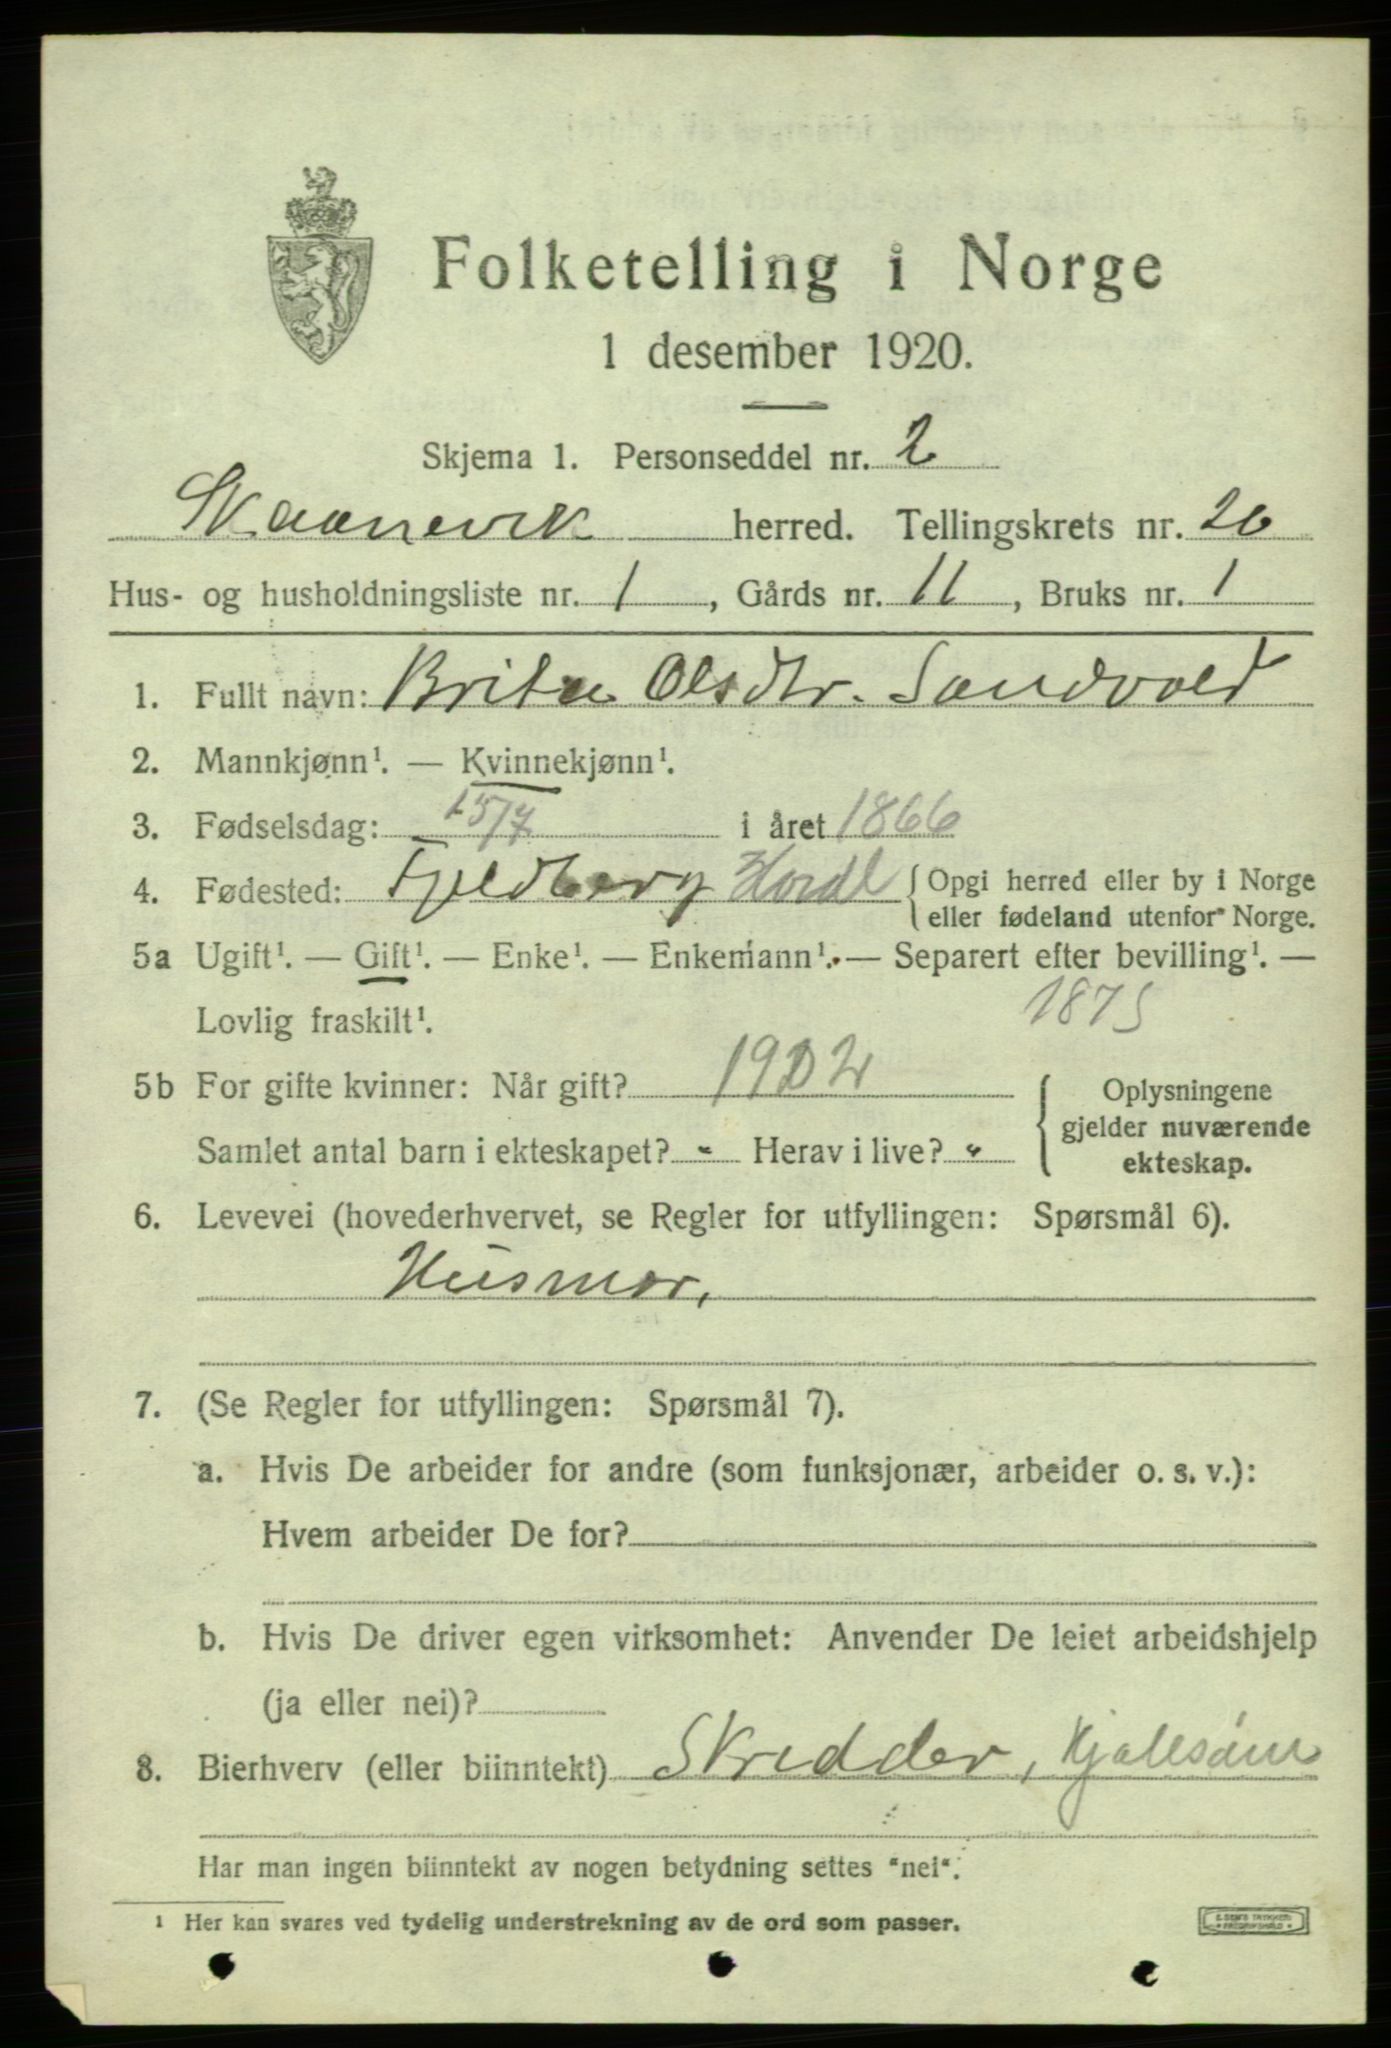 Folketelling i Norge
1 desember 1920.
Skjema 1. Personseddel nr. 2
Skaanevik herred. Tellingskrets nr. 20
Hus- og husholdningsliste nr. 1, Gårds nr. 11, Bruks nr. 1
1. Fullt navn: Brita Olsdtr. Sandvold
2. Mannkjønn¹. — Kvinnekjønn¹.
3. Fødselsdag: 15/7 i året 1866
4. Fødested: Fjeldberg Hordl {Opgi herred eller by i Norge
eller fødeland utenfor Norge.
5a Ugift¹. — Gift¹. — Enke¹. — Enkemann¹. — Separert efter bevilling¹. —
Lovlig fraskilt¹. 1875
5b For gifte kvinner: Når gift? 1902 { Oplysningene
gjelder nuværende
Samlet antal barn i ekteskapet? - Herav i live? "
ekteskap.
6. Levevei (hovederhvervet, se Regler for utfyllingen: Spørsmål 6).
Husmor,
7. (Se Regler for utfyllingen: Spørsmål 7).
a. Hvis De arbeider for andre (som funksjonær, arbeider o. s. v.):
Hvem arbeider De for?
b. Hvis De driver egen virksomhet: Anvender De leiet arbeidshjelp
(ja eller nei)?
8. Bierhverv (eller biinntekt) Skredder, Kjolesøm
Har man ingen biinntekt av nogen betydning settes "nei".
¹ Her kan svares ved tydelig understrekning av de ord som passer.